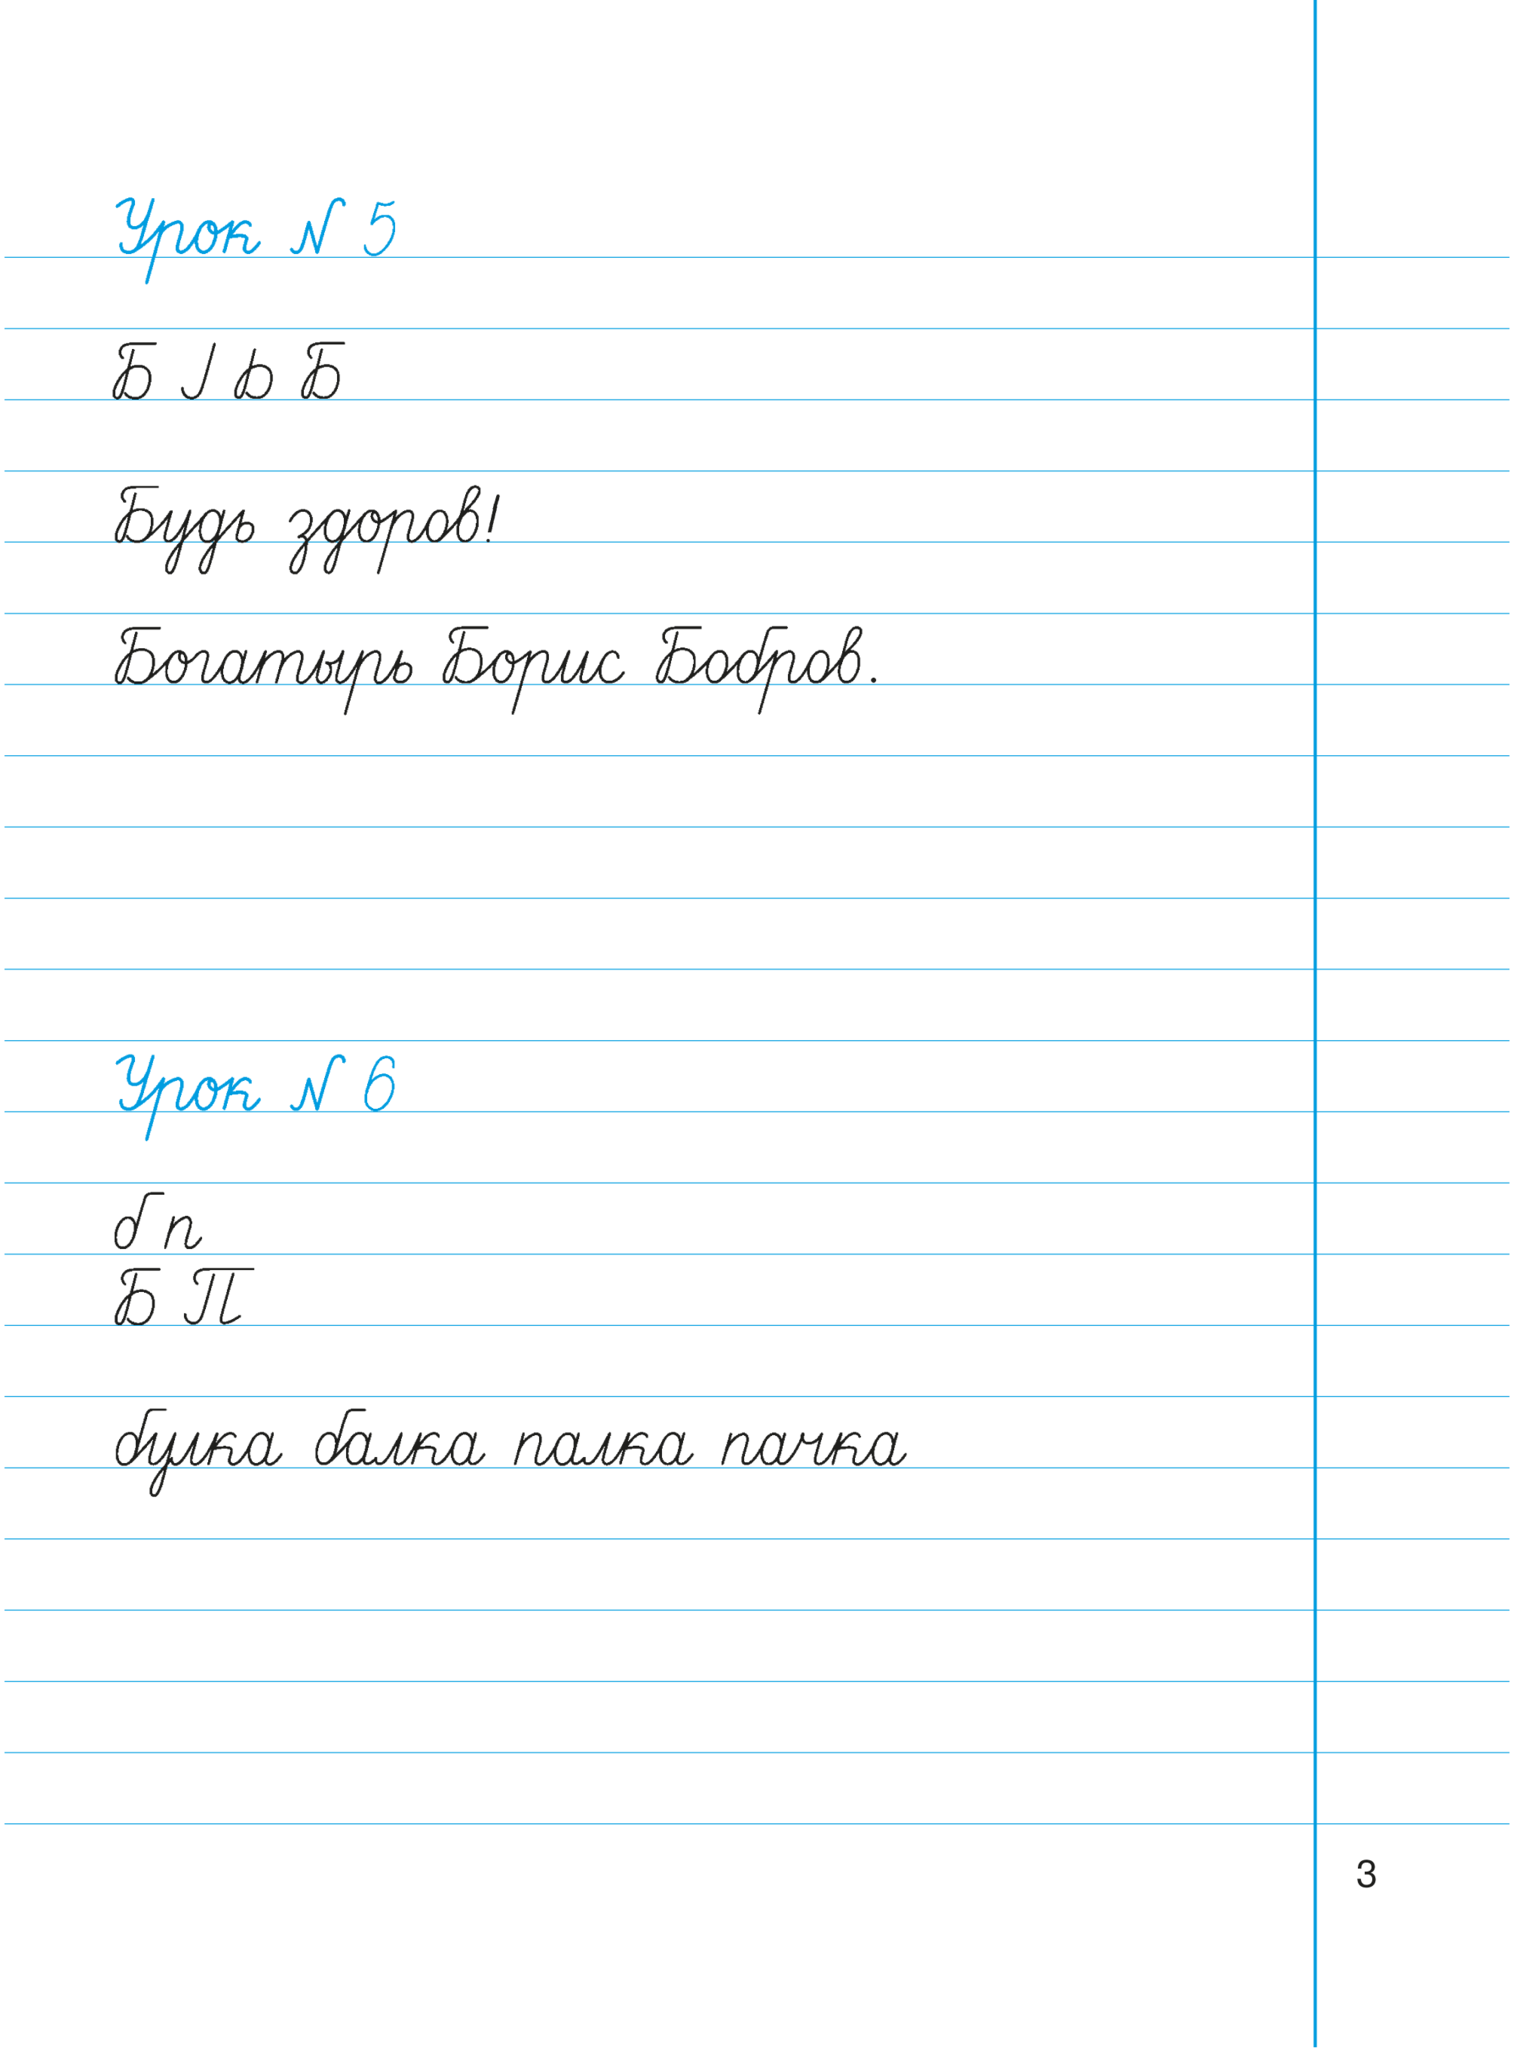 Урок N 5
Б Б
Будь здоров!
Богатырь Борис Бобров.
Урок N 6
б п
Б П
булка балка палка пачка
3